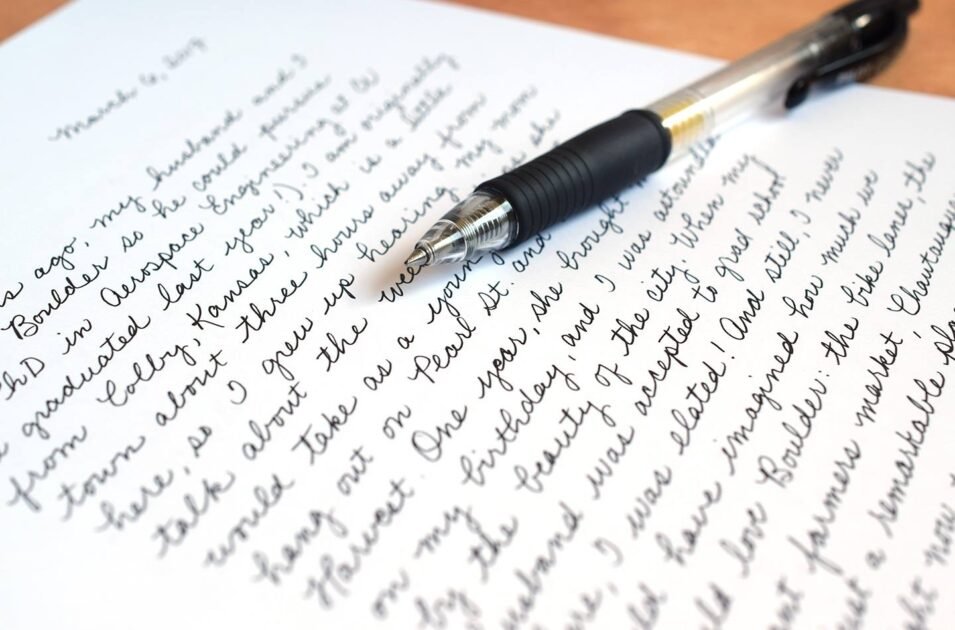 March 6, 2017
ago, my husband and I
Boulder so he could pursue
PhD in Aerospace Engineering at
graduated last year!). I am originally
from Colby, Kansas, which is a little
town about three hours away from
here, so I grew up hearing my mom
talk about the
would take as a young
hang out on Pearl St. and
Harvest. One year, she brought
on my birthday, and I was
by the beauty of the city. When my
husband was accepted to grad school
I was elated! And still, I never
have imagined how much we
love Boulder: the bike lanes, the
farmers market,
a remarkable
now